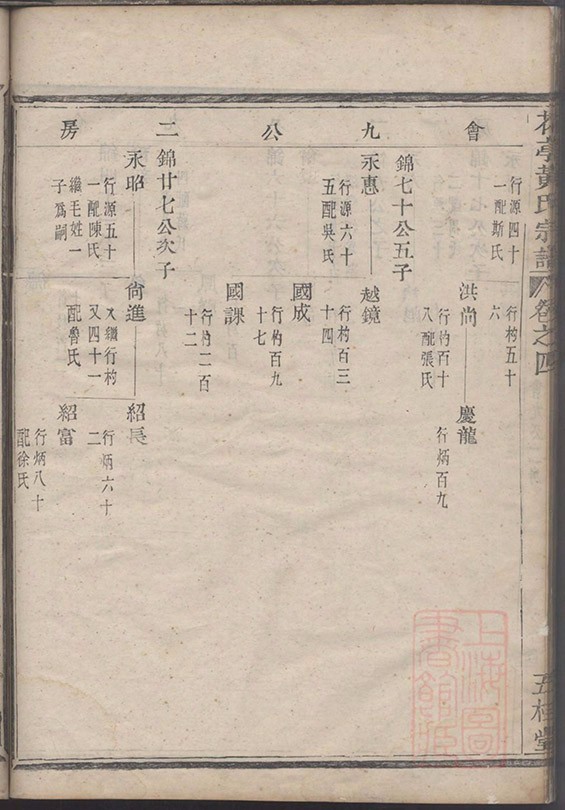 亭黃氏宗譜
卷之四
五桂堂
會九公二房
行源四十
一配斯氏
行杓五十
六
洪尚
行杓百十
八配張氏
慶龍
行炳百九
錦七十公五子
永惠
行源六十
五配吳氏
越鏡
行杓百三
十四
國成
行杓百九
十七
國課
行杓二百
十二
錦廿七公次子
永昭
行源五十
一配陳氏
繼毛姓一
子爲嗣
尙進
繼行杓
又四十一
配魯氏
紹長
行炳六十
二
紹富
行炳八十
配徐氏
上海圖
書館藏